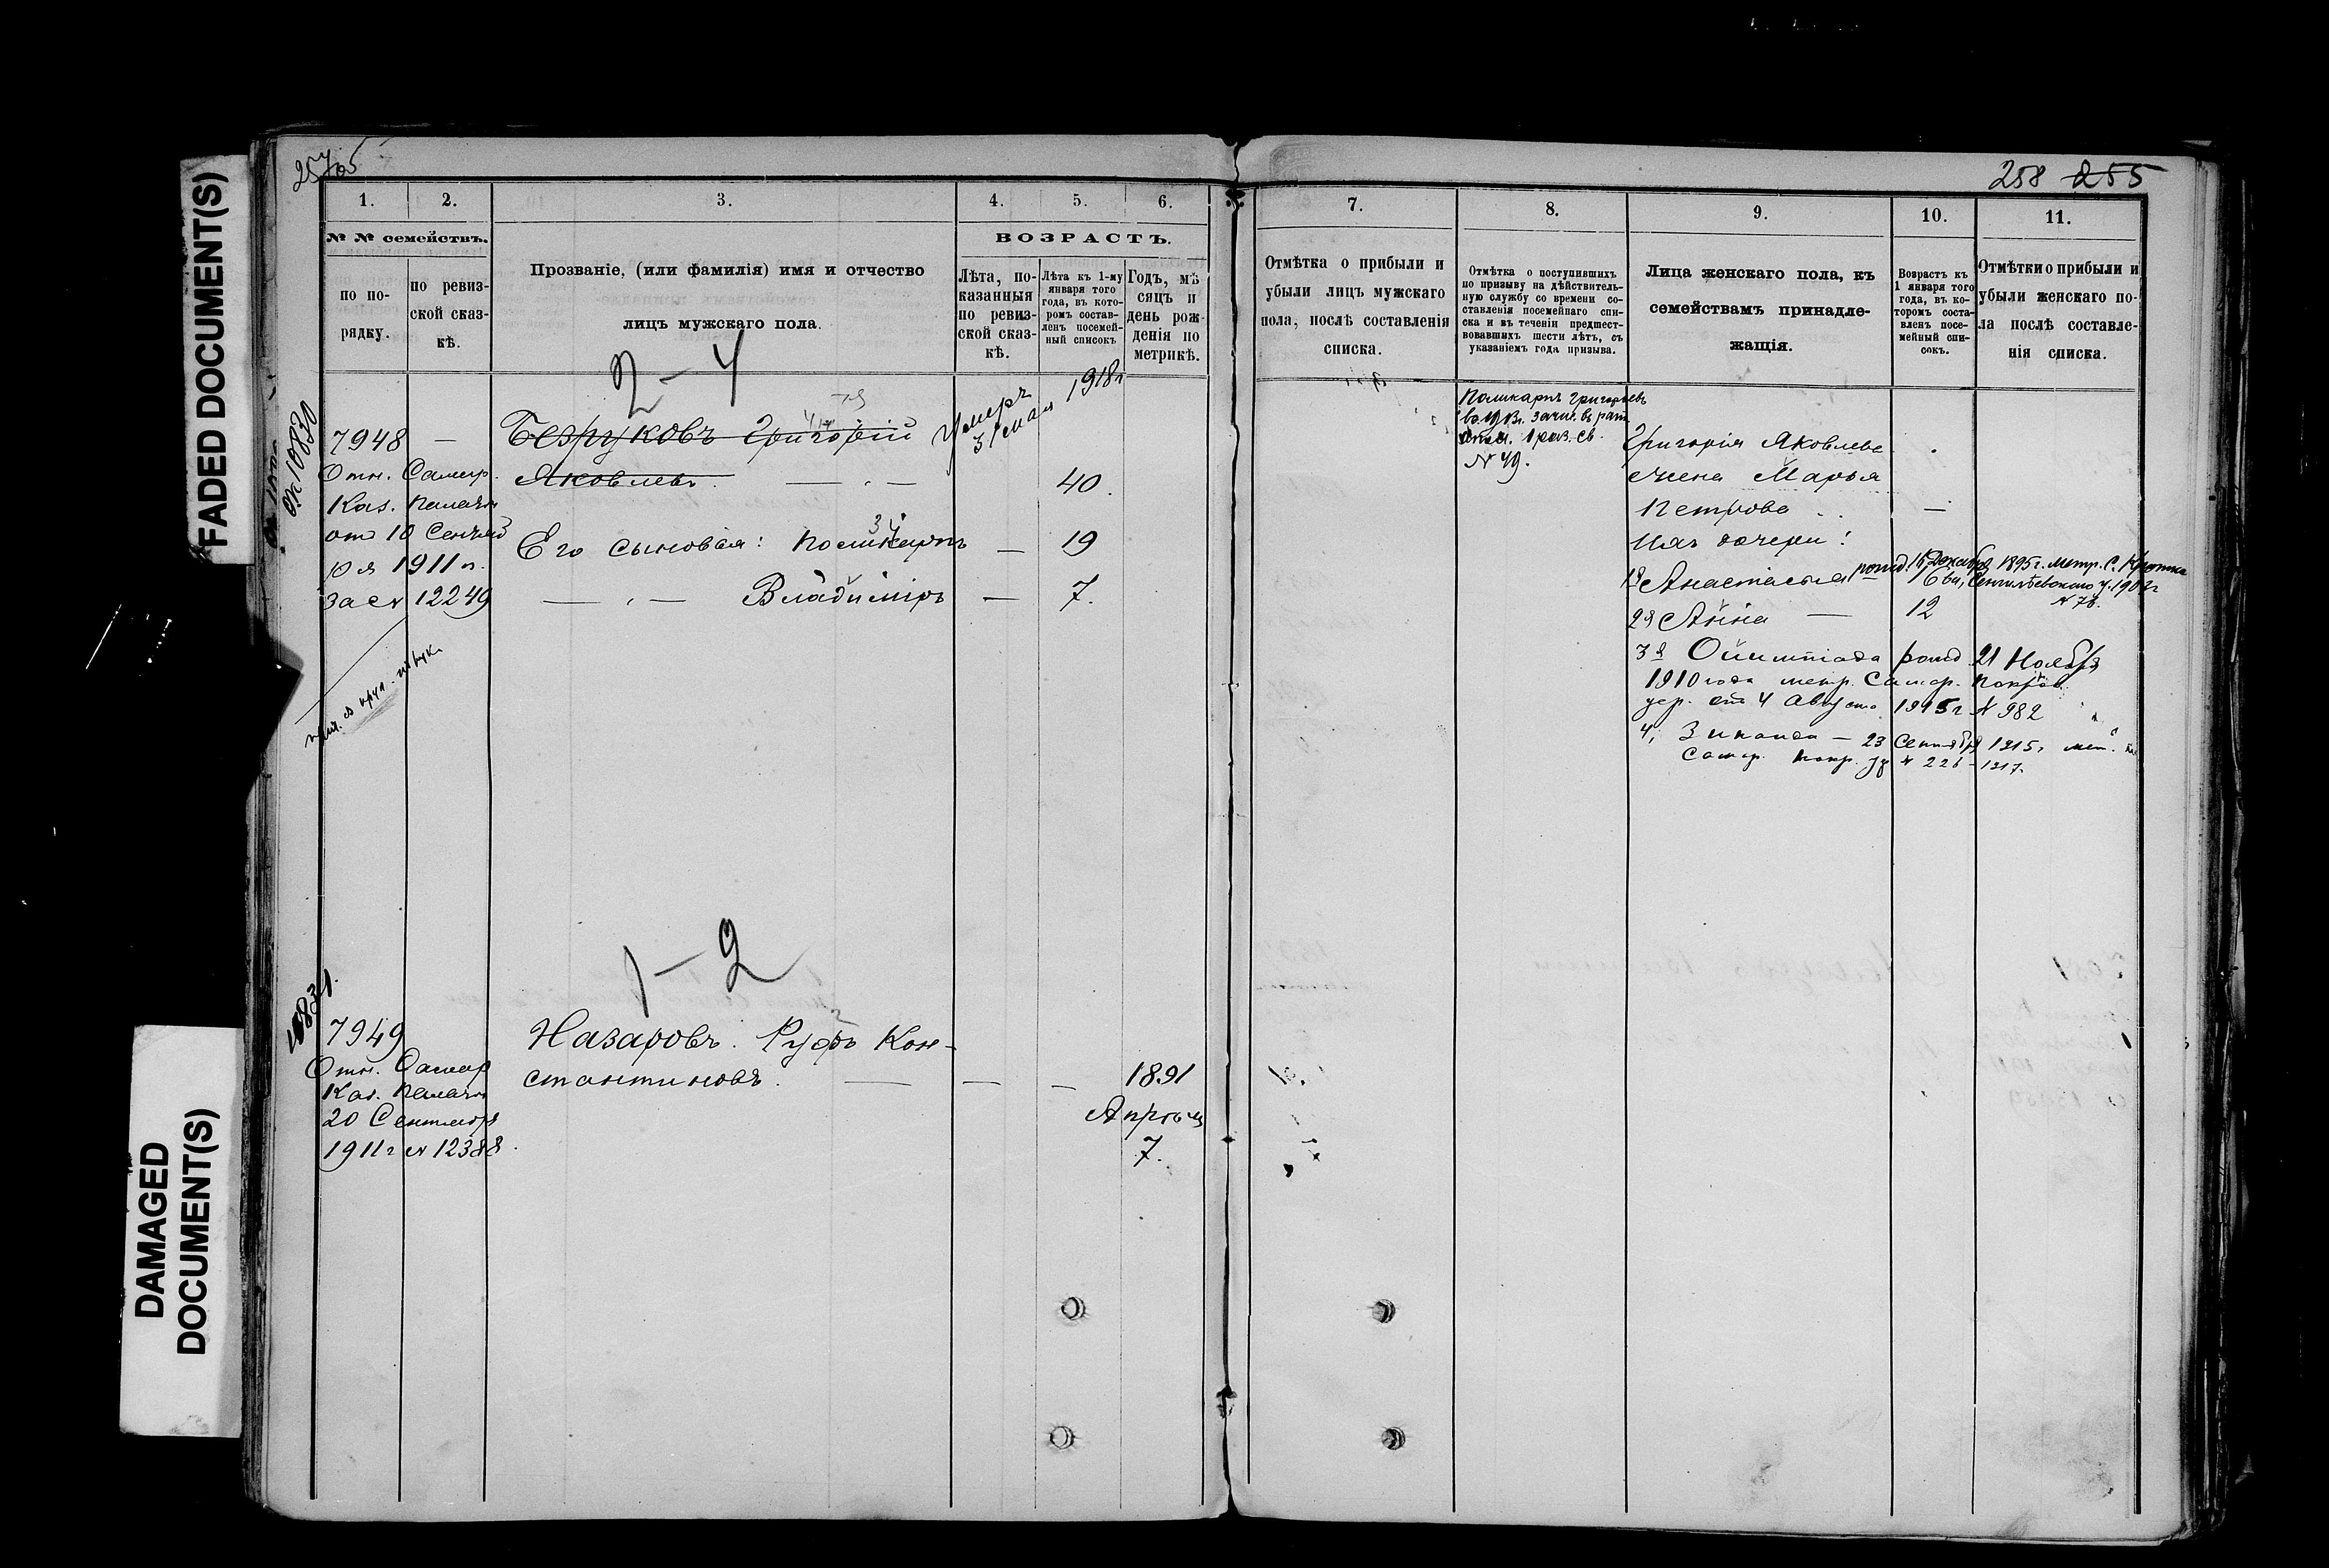 FADED DOCUMENT(S)
DAMAGED
DOCUMENT(S)
258 255
1.
2.
3.
4.
5.
6.
№ № семействъ.
по по-
рядку.
по ревиз-
ской сказ-
кѣ.
Прозваніе, (или фамилія) имя и отчество
лицъ мужскаго пола.
ВОЗРАСТЪ.
Лѣта, по-
казанныя
по ревиз-
ской сказ-
кѣ.
Лѣта къ 1-му
января того
года, въ кото-
ромъ состав-
ленъ посемей-
ный списокъ
Годъ, мѣ-
сяцъ и
день рож-
денія по
метрикѣ.
2 – 4
10830
7948 —
Безруковъ Григорій
Умеръ
31 мая 1918 г
Отн. Самар.
Яковлевъ
40.
Каз. Палаты
от 10 Сентяб
ря 1911 г.
за № 12249
34
Его сыновья: Поликарпъ — 19
Владиміръ — 7.
1 – 2
7949
Назаровъ. Руфъ Кон-
стантиновъ. — — —
1891
Апрѣля
7.
Отн. Самар
Каз. Палаты
20 Сентября
1911 г № 12388.
7.
8.
9.
10.
11.
Отмѣтка о прибыли и
убыли лицъ мужскаго
пола, послѣ составленія
списка.
Отмѣтка о поступившихъ
по призыву на дѣйствитель-
ную службу со времени со-
ставленія посемейнаго спи-
ска и въ теченіи предшест-
вовавшихъ шести лѣтъ, съ
указаніемъ года призыва.
Лица женскаго пола, къ
семействамъ принадле-
жащія.
Возрастъ къ
1 января того
года, въ ко-
торомъ соста-
вленъ посе-
мейный спи-
сокъ.
Отмѣтки о прибыли и
убыли женскаго по-
ла послѣ составле-
нія списка.
Поликарпъ Григорьевъ
зачис. в рат.
1 раз. св.
№ 49.
Григорія Яковлева
жена Марья
Петрова —
Ихъ дочери:
1я Анастасья 16
рожд 16 Декабря 1895 г. метр. С.
Сенгилѣевскаго у. 190
2я Анна — 12
3я Олимпіада рожд 21 Ноября
1910 года метр. Самар. Покров.
цер. от 4 Августа 1915 г № 982
4, Зинаида — 23 Сентября 1915 г.
Самар. Покр. № 226 – 1917.